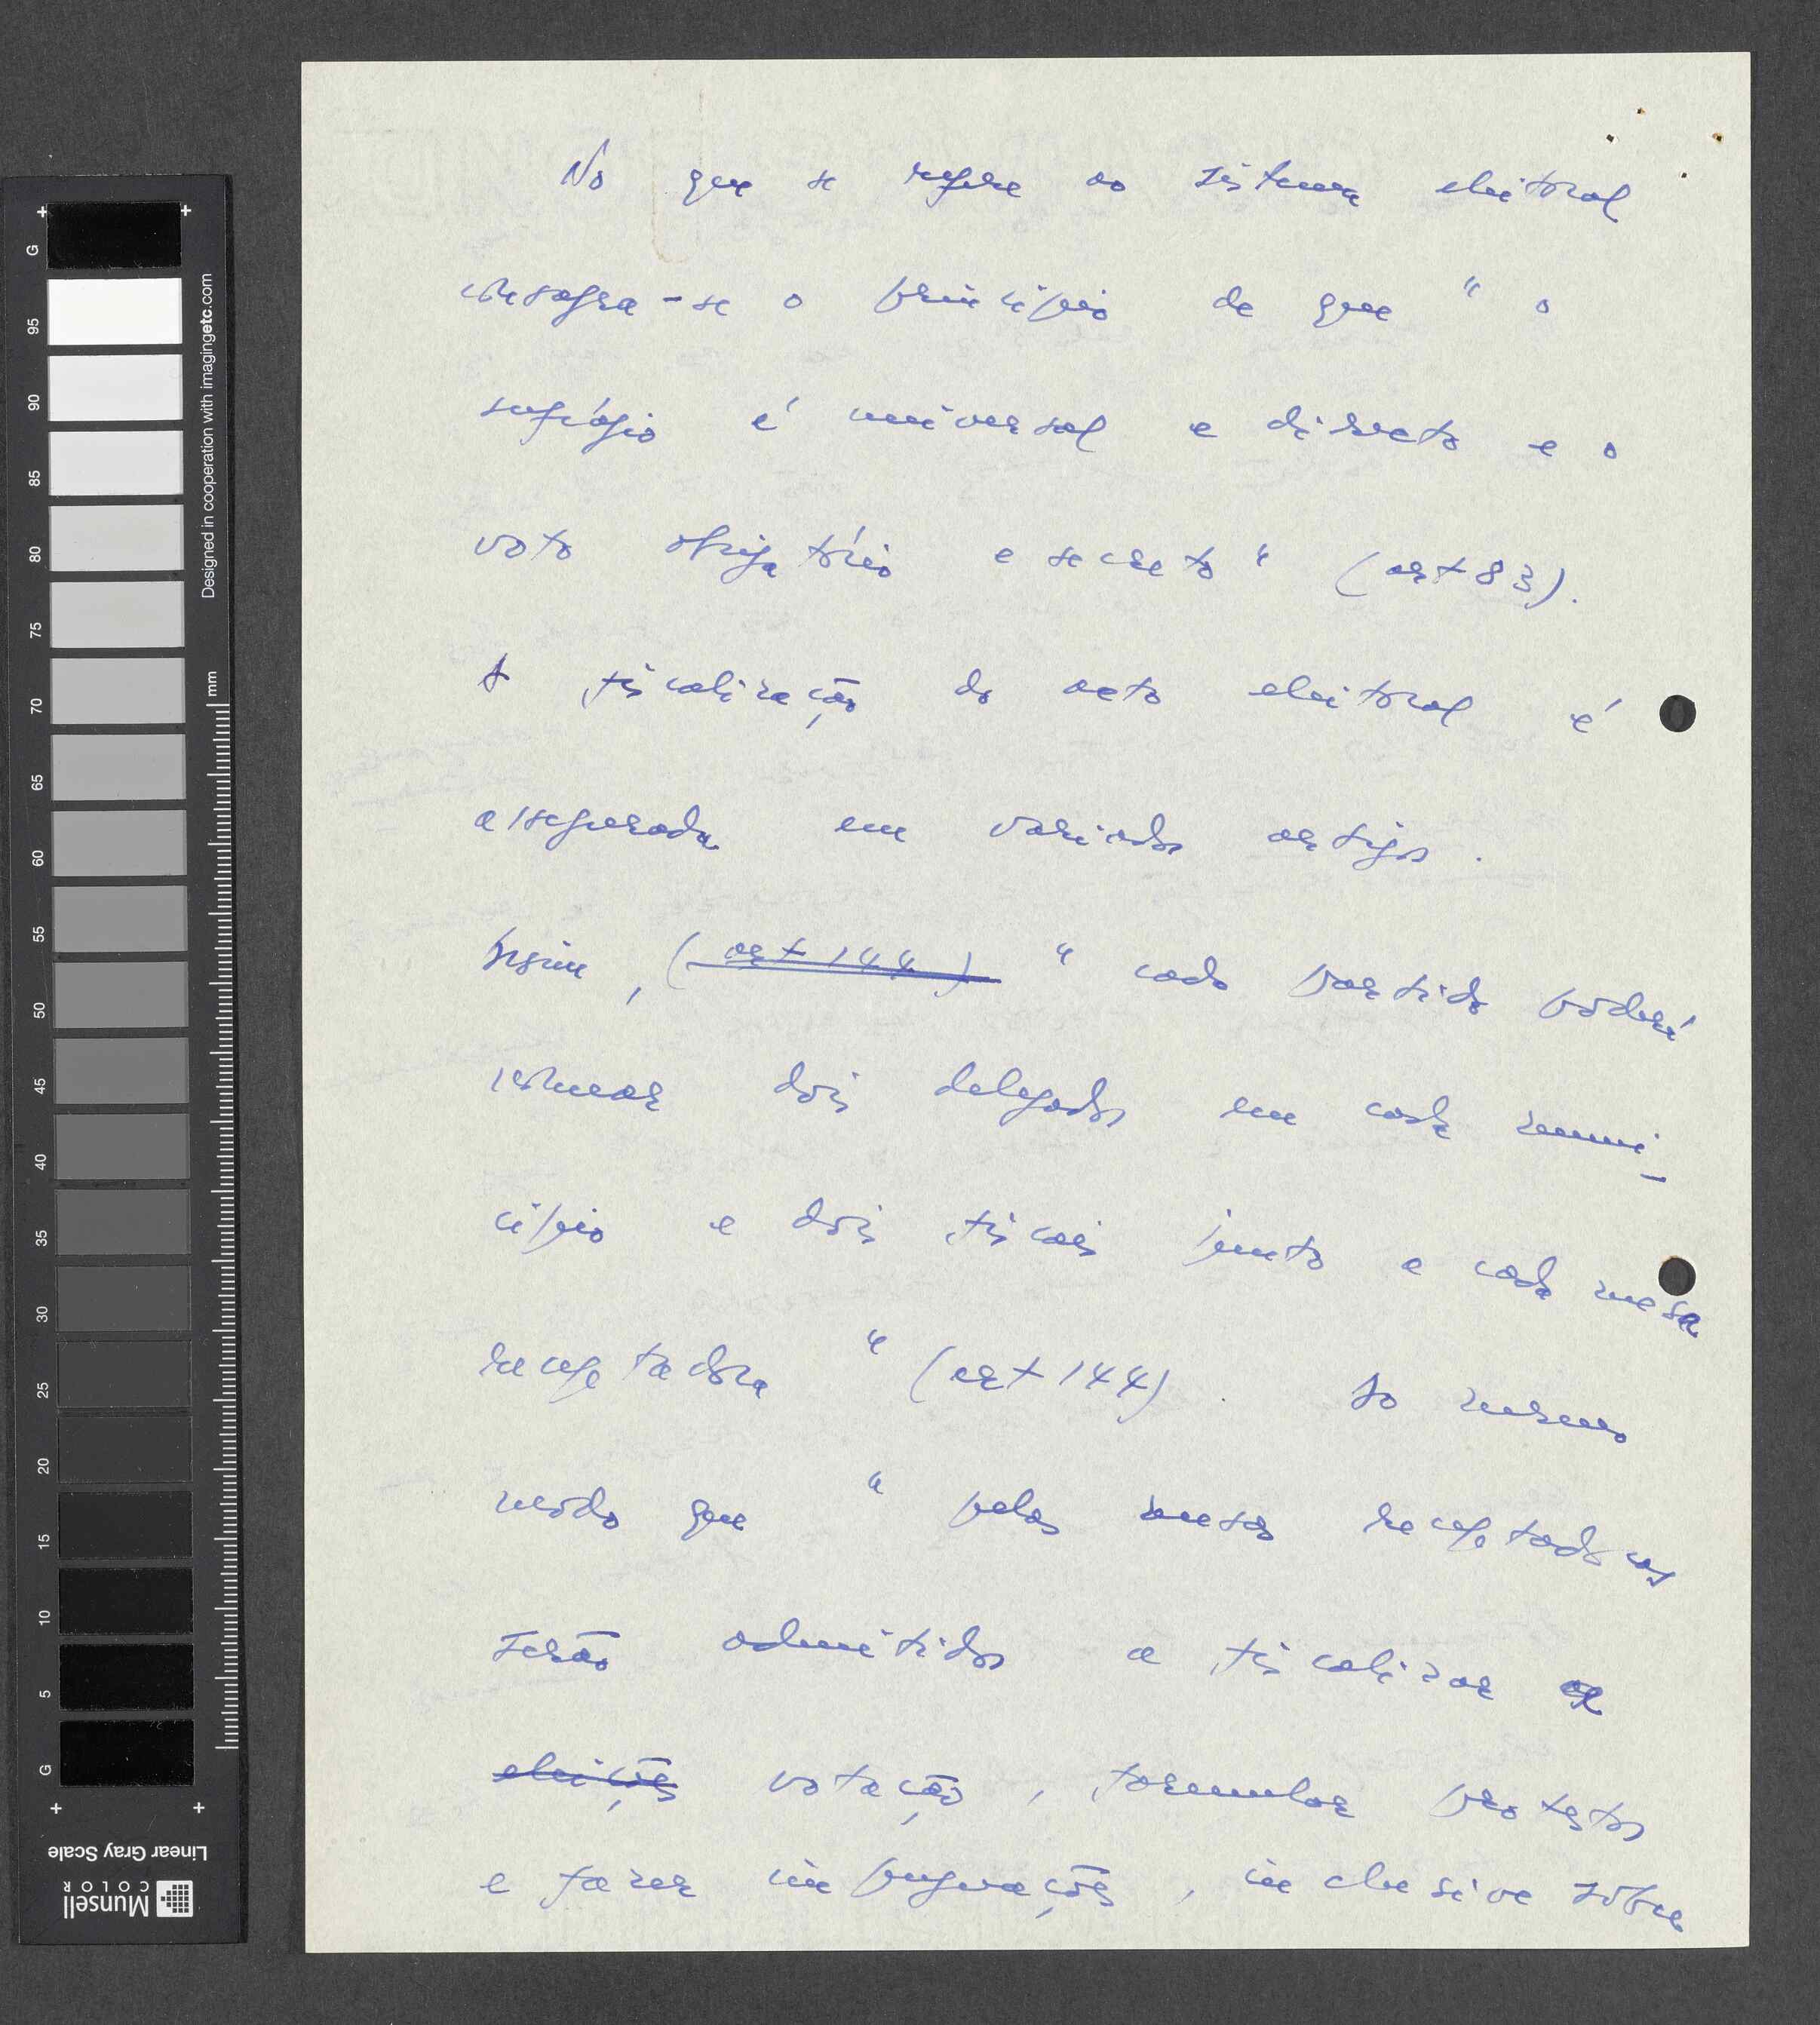 No que se refere ao sistema eleitoral
consagra-se o princípio de que " o
sufrágio é universal e directo e o
voto obrigatório e secreto " (art 83).
A fiscalização do acto eleitoral é
assegurada em variados artigos .
Assim , (art 144) " cada partido poderá
nomear dois delegados em cada muni-
cípio e dois fiscais junto a cada mesa
receptadora " (art 144) . Ao mesmo
modo que " pelas mesas receptadoras
serão admitidos a fiscalizar a
eleições votação , formular protestos
e fazer impugnações , inclusive sôbre
+ G 95 90 85 80 75 70 65 60 55 50 45 40 35 30 25 20 15 10 5 G +
Designed in cooperation with imagingetc.com
mm
Linear Gray Scale
Munsell
COLOR